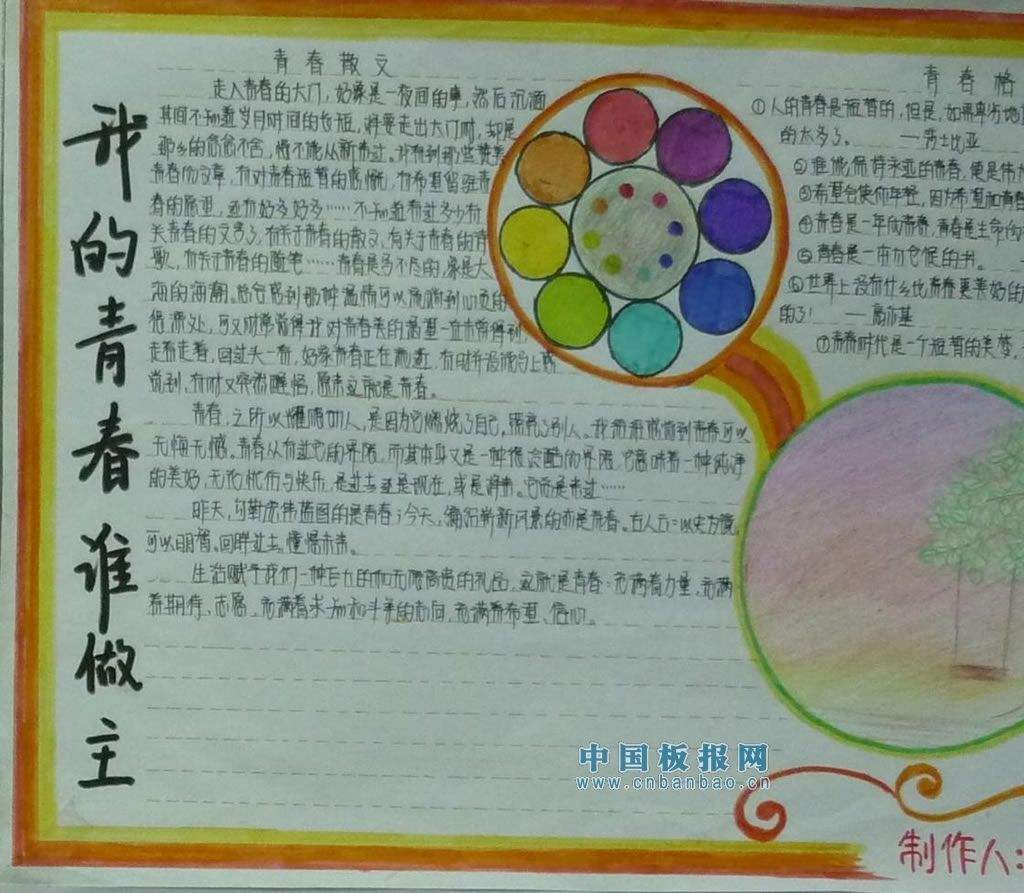 我的青春谁做主
青春散文
走入青春的大门，好象是一夜间的事，然后沉湎
其间不知道岁月时间的长短，将要走出大门时，却是
那么的贪恋不舍，恨不能从新来过。我看到那些赞美
青春的文章，有对青春短暂的感慨，有希望留驻青
春的愿望，还有好多好多……不知道有过多少有
关青春的文字了，有关于青春的散文，有关于青春的诗
歌，有关于青春的随笔……青春是写不尽的，象是大
海的海潮。总会感到那种温情可以流淌到心灵的
很深处，可又时常觉得我对青春美的渴望一直未曾得到。
走着走着，回过头一看，好象青春正在
说到，有时又突然醒悟，原来这就是青春。
青春，之所以懂得切人，是因为它燃烧了自己，照亮了别人。我
无悔无憾。青春从有过它的界限，而其本身又是一种很
的美好，无论忧伤与快乐，是过去还是现在，或是将来。它
昨天，勾勒宏伟蓝图的是青春；今天，描绘崭新风景的亦是青春。
可以明智。回眸过去，憧憬未来。
生活赋予我们一种巨大的和无限高贵的礼品，这就是青春：充满着力量，充满
着期待、志愿，充满着求知和斗争的志向，充满着希望、信心。
青春格
①人的青春是短暂的，但是，如果卑劣地
的太多了。 ——莎士比亚
②谁能保持永远的青春，便是伟
③希望会使你年轻，因为希望和青春
④青春是一年的青春，青春是生命的
⑤青春是一本
⑥世界上没有什么比青春更美好的
的了！ ——高尔基
⑦青春时代是一个短暂的美梦，
中国板报网
www.cnbanbao.cn
制作人：